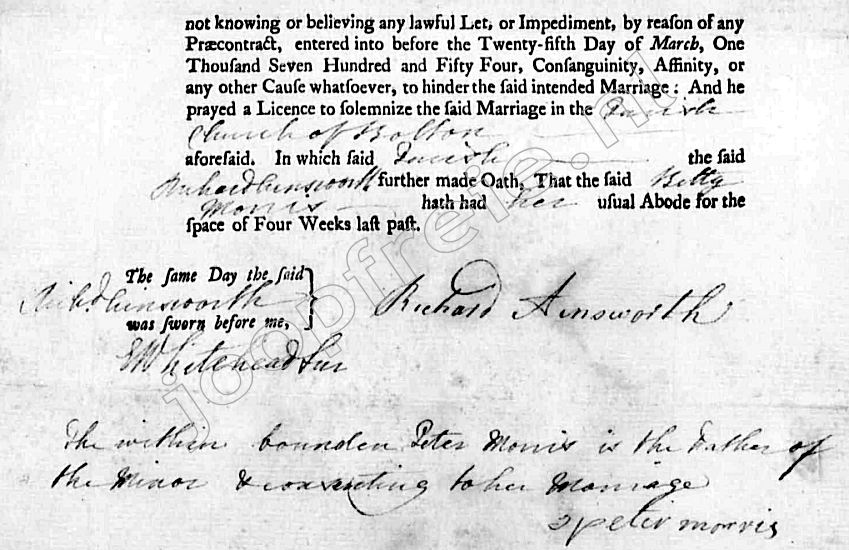 not knowing or believing any lawful Let, or Impediment, by reaſon of any
Præcontract, entered into before the Twenty-fifth Day of March, One
Thouſand Seven Hundred and Fifty Four, Conſanguinity, Affinity, or
any other Cauſe whatſoever, to hinder the ſaid intended Marriage: And he
prayed a Licence to ſolemnize the ſaid Marriage in the Parish
Church of Bolton
aforeſaid. In which ſaid Parish the ſaid
Richard Ainsworth further made Oath, That the ſaid Betty
Morris hath had her uſual Abode for the
ſpace of Four Weeks laſt paſt.
The ſame Day the ſaid
Richd. Ainsworth
was ſworn before me,
Richard Ainsworth
E Whitehead Sur
The within bounden Peter Morris is the Father of
the Minor & consenting to her Marriage
peter morris
joopfreie.nl